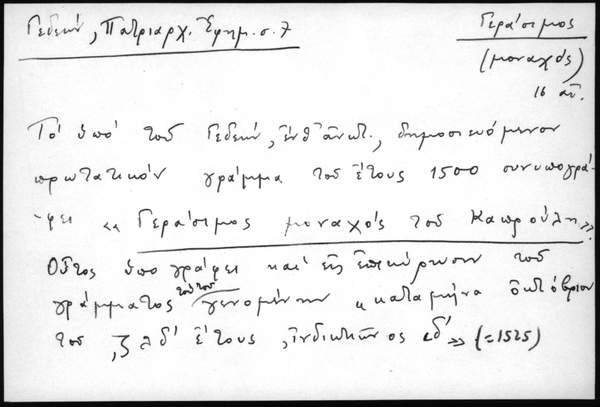 Γεδεών, Πατριαρχ. Ἐφημ. σ. 7
Γεράσιμος
(μοναχός)
16 αἰ.
Τό ὑπό τοῦ Γεδεών, ἔνθ' ἀνωτ., δημοσιευόμενον
πρωτατικόν γράμμα τοῦ ἔτους 1500 συνυπογρά-
-φει «Γεράσιμος μοναχός τοῦ Καπρούλη».
Οὗτος ὑπογράφει καί εἰς ἐπικύρωσιν τοῦ
γράμματος τούτου γενομένην «κατα μήνα ὀκτώβριον
τοῦ ,ζλδ' ἔτους, ἰνδικτιῶνος ιδ'» (=1525)